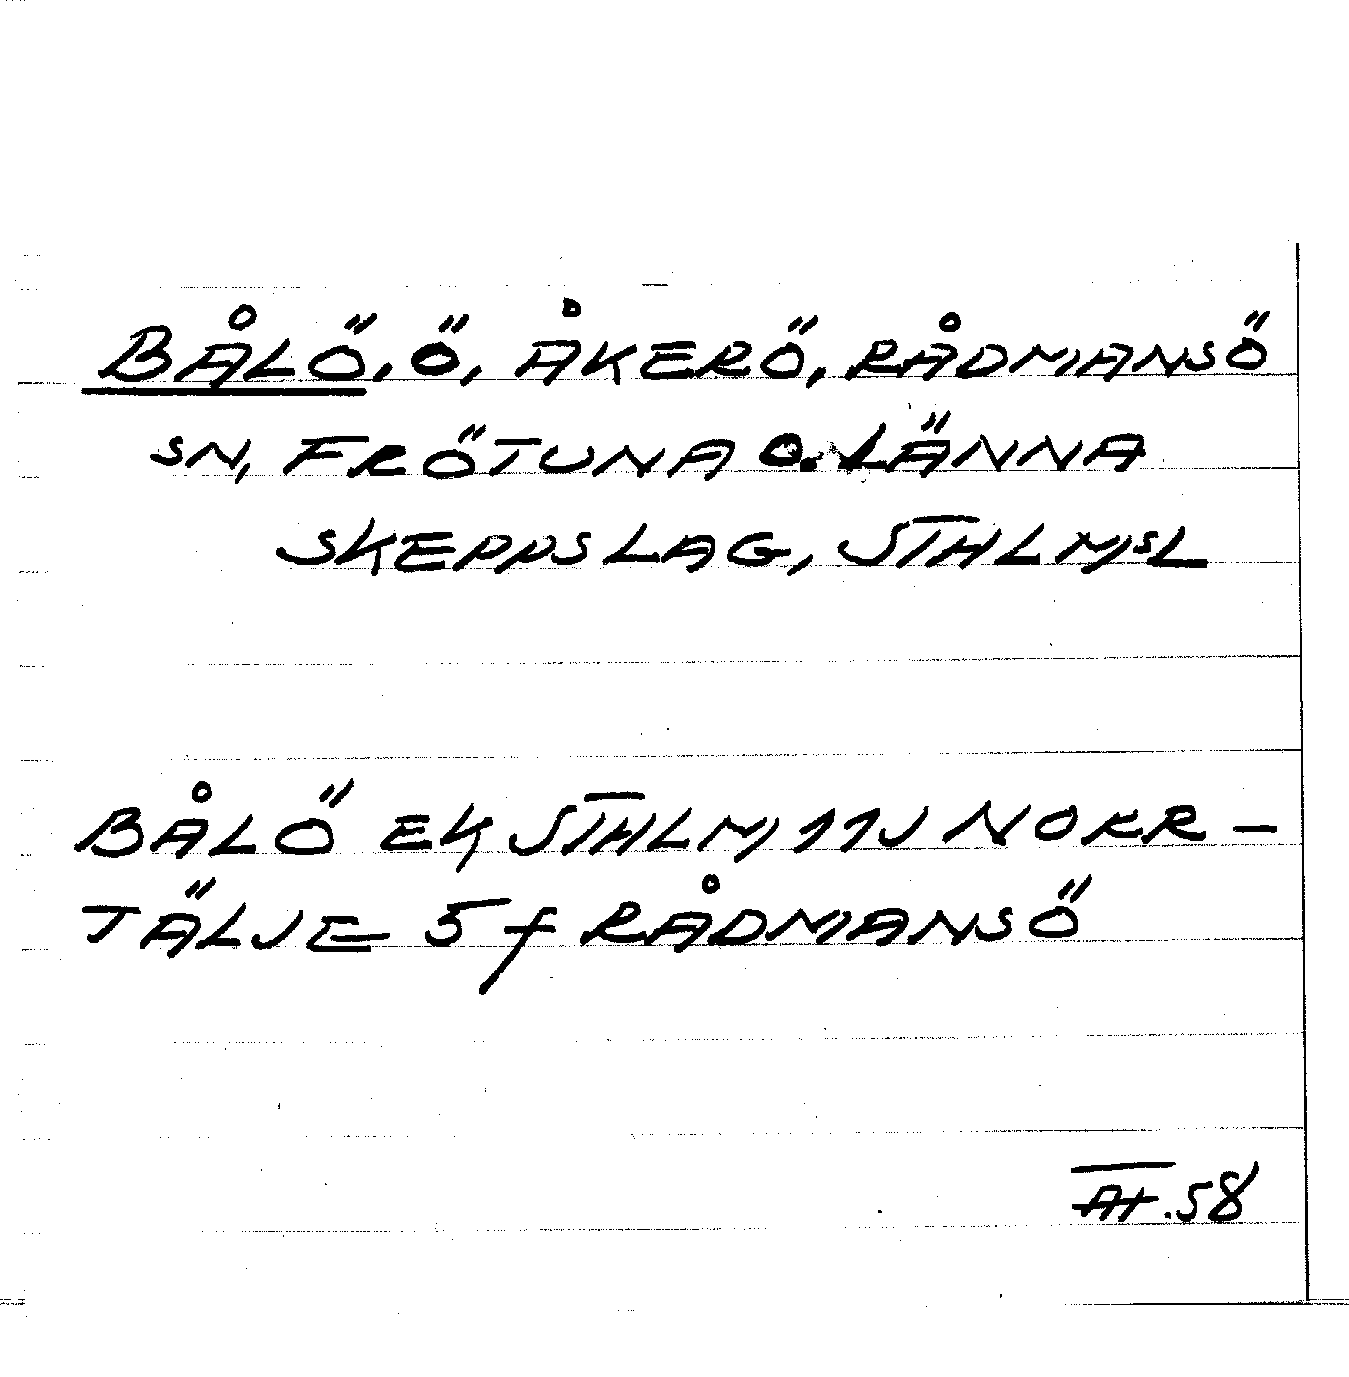 BÅLÖ, Ö, ÅKERÖ, RÅDMANSÖ
SN, FRÖTUNA O. LÄNNA
SKEPPSLAG, STHLMSL
BÅLÖ EK STHLM 11J NORR-
TÄLJE 5f RÅDMANSÖ
58